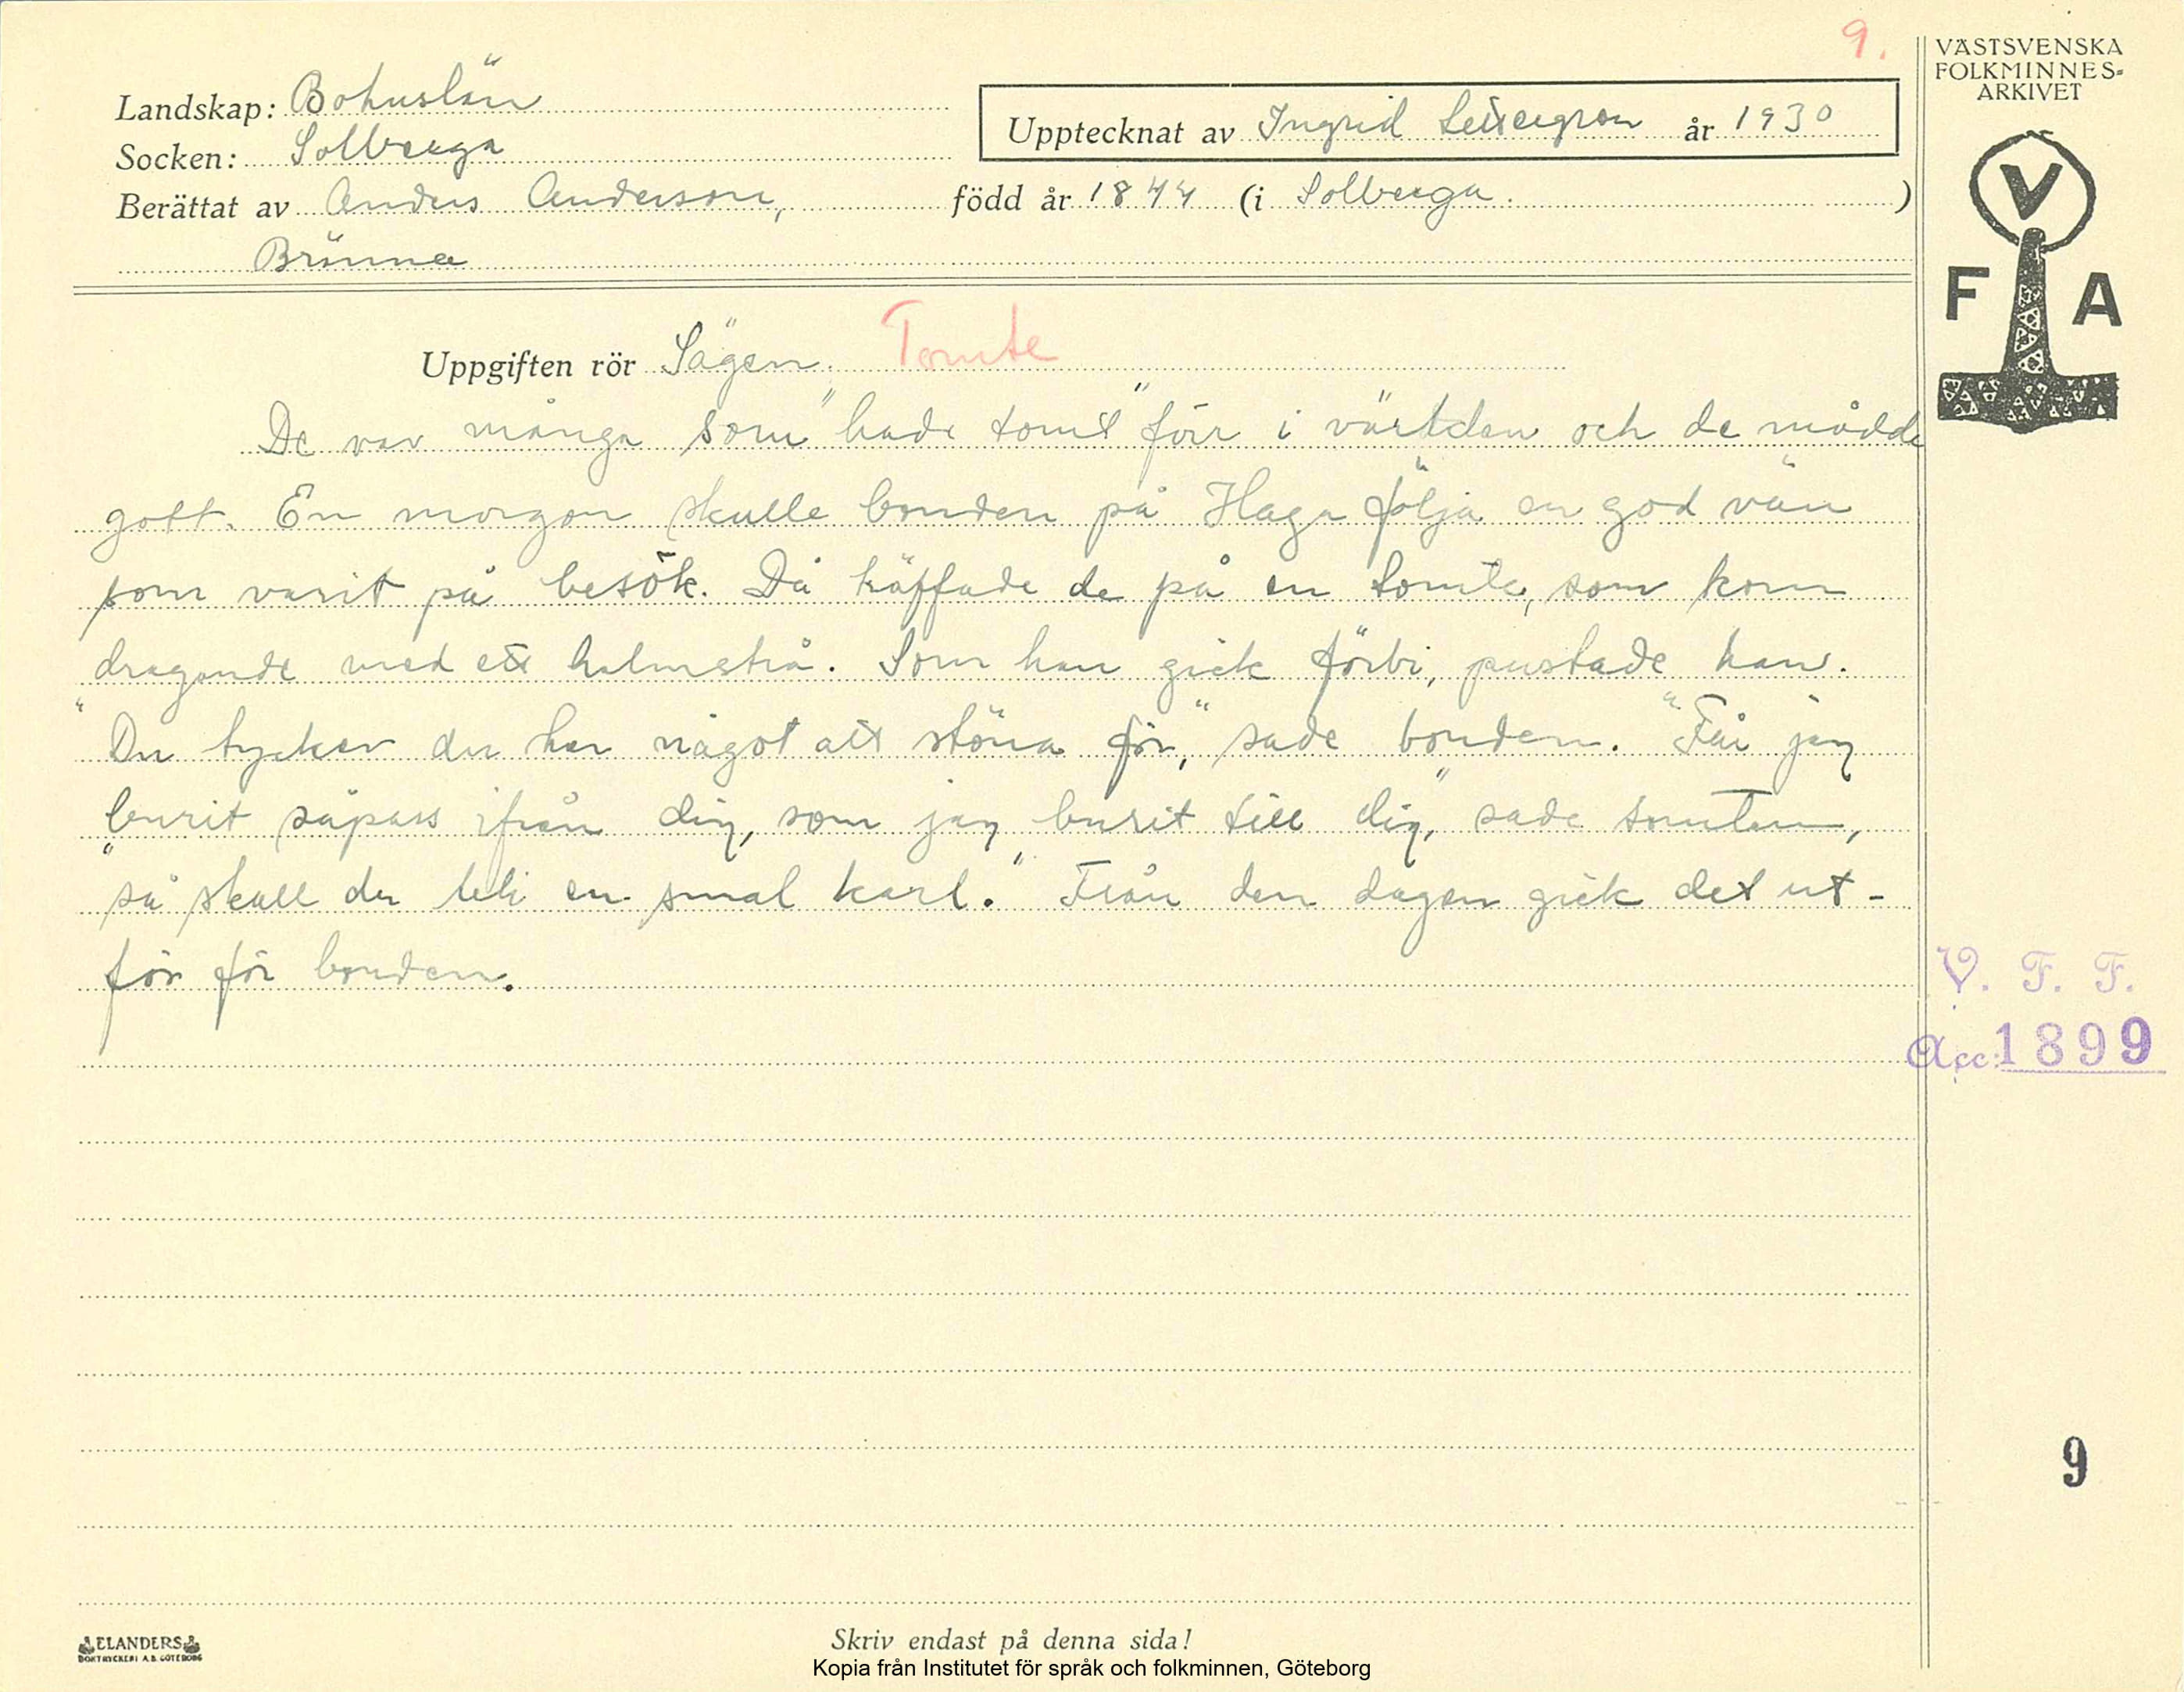 9.
VÄSTSVENSKA
FOLKMINNES-
ARKIVET
Landskap: Bohuslän
Upptecknat av Ingrid år 1930
Socken: Solberga
Berättat av Anders Anderson, född år 1844 (i Solberga.)
Brunna
V
F A
Uppgiften rör Sägen. Tomte
De var många som "hade tomt" förr i världen och de mådde
gott. En morgon skulle bonden på Haga följa en god vän
som varit på besök. Då träffade de på en tomte, som kom
dragande med ett halmstrå. Som han gick förbi, pustade han.
"Du tycker du har något att stöna för," sade bonden. "Får jag
burit såpass ifrån dig, som jag burit till dig," sade tomten,
"så skall du bli en smal karl." Från den dagen gick det ut-
för för bonden.
V. F. F.
Acc: 1899
9
ELANDERS
BOKTRYCKERI A.B. GÖTEBORG
Skriv endast på denna sida!
Kopia från Institutet för språk och folkminnen, Göteborg